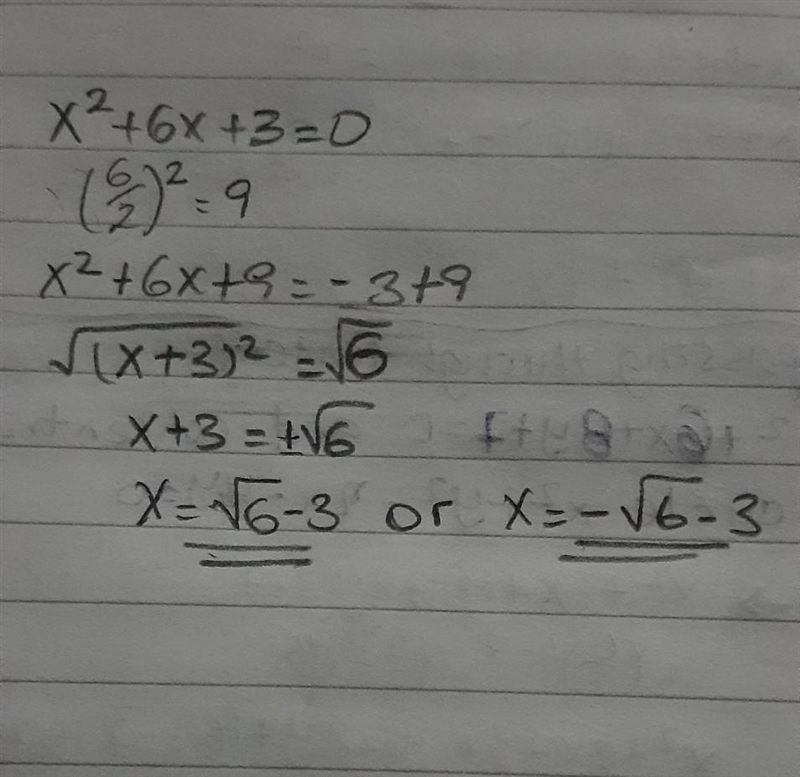 x²+6x+3=0
(6/2)²=9
x²+6x+9=-3+9
√(x+3)²=√6
x+3=±√6
x=√6-3 or x=-√6-3